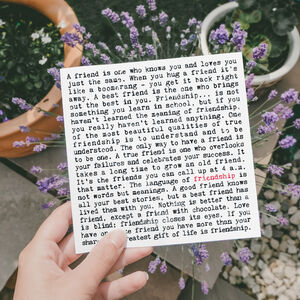 A friend is one who knows you and loves you
just the same. When you hug a friend it's
like a boomerang - you get it back right
away. A best friend is the one who brings
out the best in you. Friendship... is not
something you learn in school, but if you
haven't learned the meaning of friendship
you really haven't learned anything. One
of the most beautiful qualities of true
friendship is to understand and to be
understood. The only way to have a friend is
to be one. A true friend is one who overlooks
your failures and celebrates your success. It
takes a long time to grow an old friend.
It's the friends you can call up at 4 a.m.
that matter. The language of friendship is
not words but meanings. A good friend knows
all your best stories, but a best friend has
lived them with you. Nothing is better than a
friend, except a friend with chocolate. Love
is blind; friendship closes its eyes. If you
have one friend you have more than your
share. greatest gift of life is friendship.